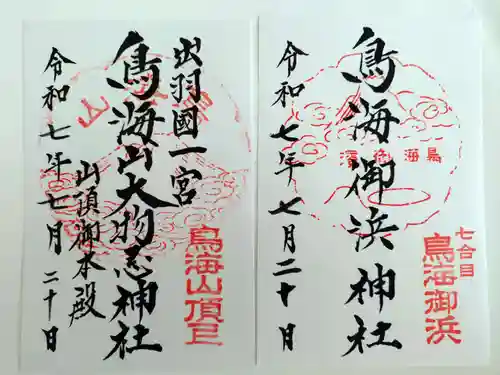 七合目
鳥海御浜
鳥海御浜神社
令和七年七月二十日
鳥海山頂
出羽國一宮
鳥海山大物忌神社
山頂御本殿
令和七年七月二十日